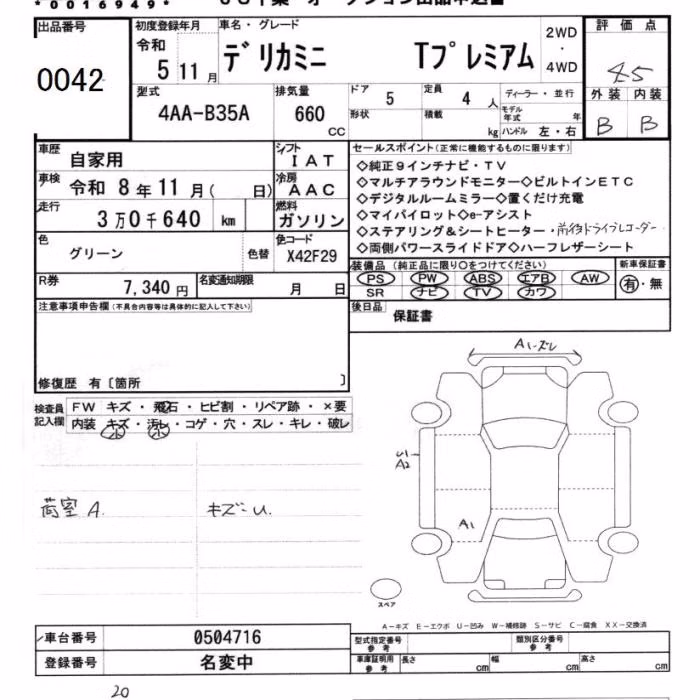 *0016949*
出品番号
0042
初度登録年月
令和
5 11 月
車名・グレード
デリカミニ Tプレミアム
2WD
・
4WD
評価点
4.5
外装 内装
B B
型式
4AA-B35A
排気量
660
CC
ドア
5
定員
4 人
形状
積載
kg
ディーラー・並行
モデル年式 年
ハンドル 左・右
車歴
自家用
シフト
IAT
車検
令和 8 年 11 月( 日)
冷房
AAC
走行
3万0千640 km
燃料
ガソリン
色
グリーン
色替
色コード
X42F29
R券
7,340 円
名変通知期限
月 日
セールスポイント(正常に機能するものに限ります)
◇純正9インチナビ・TV
◇マルチアラウンドモニター◇ビルトインETC
◇デジタルルームミラー◇置くだけ充電
◇マイパイロット◇e-アシスト
◇ステアリング&シートヒーター・前後ドライブレコーダー
◇両側パワースライドドア◇ハーフレザーシート
装備品(純正品に限り○をつけてください)
PS PW ABS エアB AW
SR ナビ TV カワ
新車保証書
有・無
後日品
保証書
注意事項申告欄(不具合内容等は具体的に記入して下さい)
修復歴 有〔箇所 〕
検査員
記入欄
FW キズ・飛石・ヒビ割・リペア跡・×要
内装 キズ・汚レ・コゲ・穴・スレ・キレ・破レ
小 小
荷室 A.
キズ U.
A1・ズレ
S1
A2
A1
スペア
A−キズ E−エクボ U−凹み W−補修跡 S−サビ C−腐食 XX−交換済
車台番号
0504716
登録番号
名変中
型式指定番号
参考
類別区分番号
参考
車庫証明用
参考
長さ cm
幅 cm
高さ cm
20